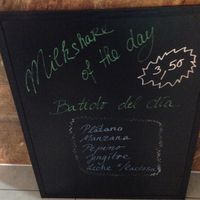 Milkshare
of the day
3,50
Batido del dia
Platano
Manzana
Pepino
Jengibre
Leche